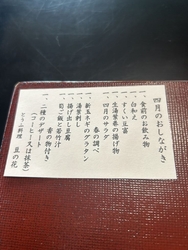 四月のおしながき
一、食前のお飲み物
一、白和え
一、すくい豆富
一、生湯葉春の揚げ物
一、四月のサラダ
春の調べ
一、新玉ネギのグラタン
一、湯葉刺し
一、揚げ出し豆腐
一、筍ご飯と若竹汁
香の物付き
一、二種のデザート
(コーヒー又は抹茶)
とうふ料理 豆の花